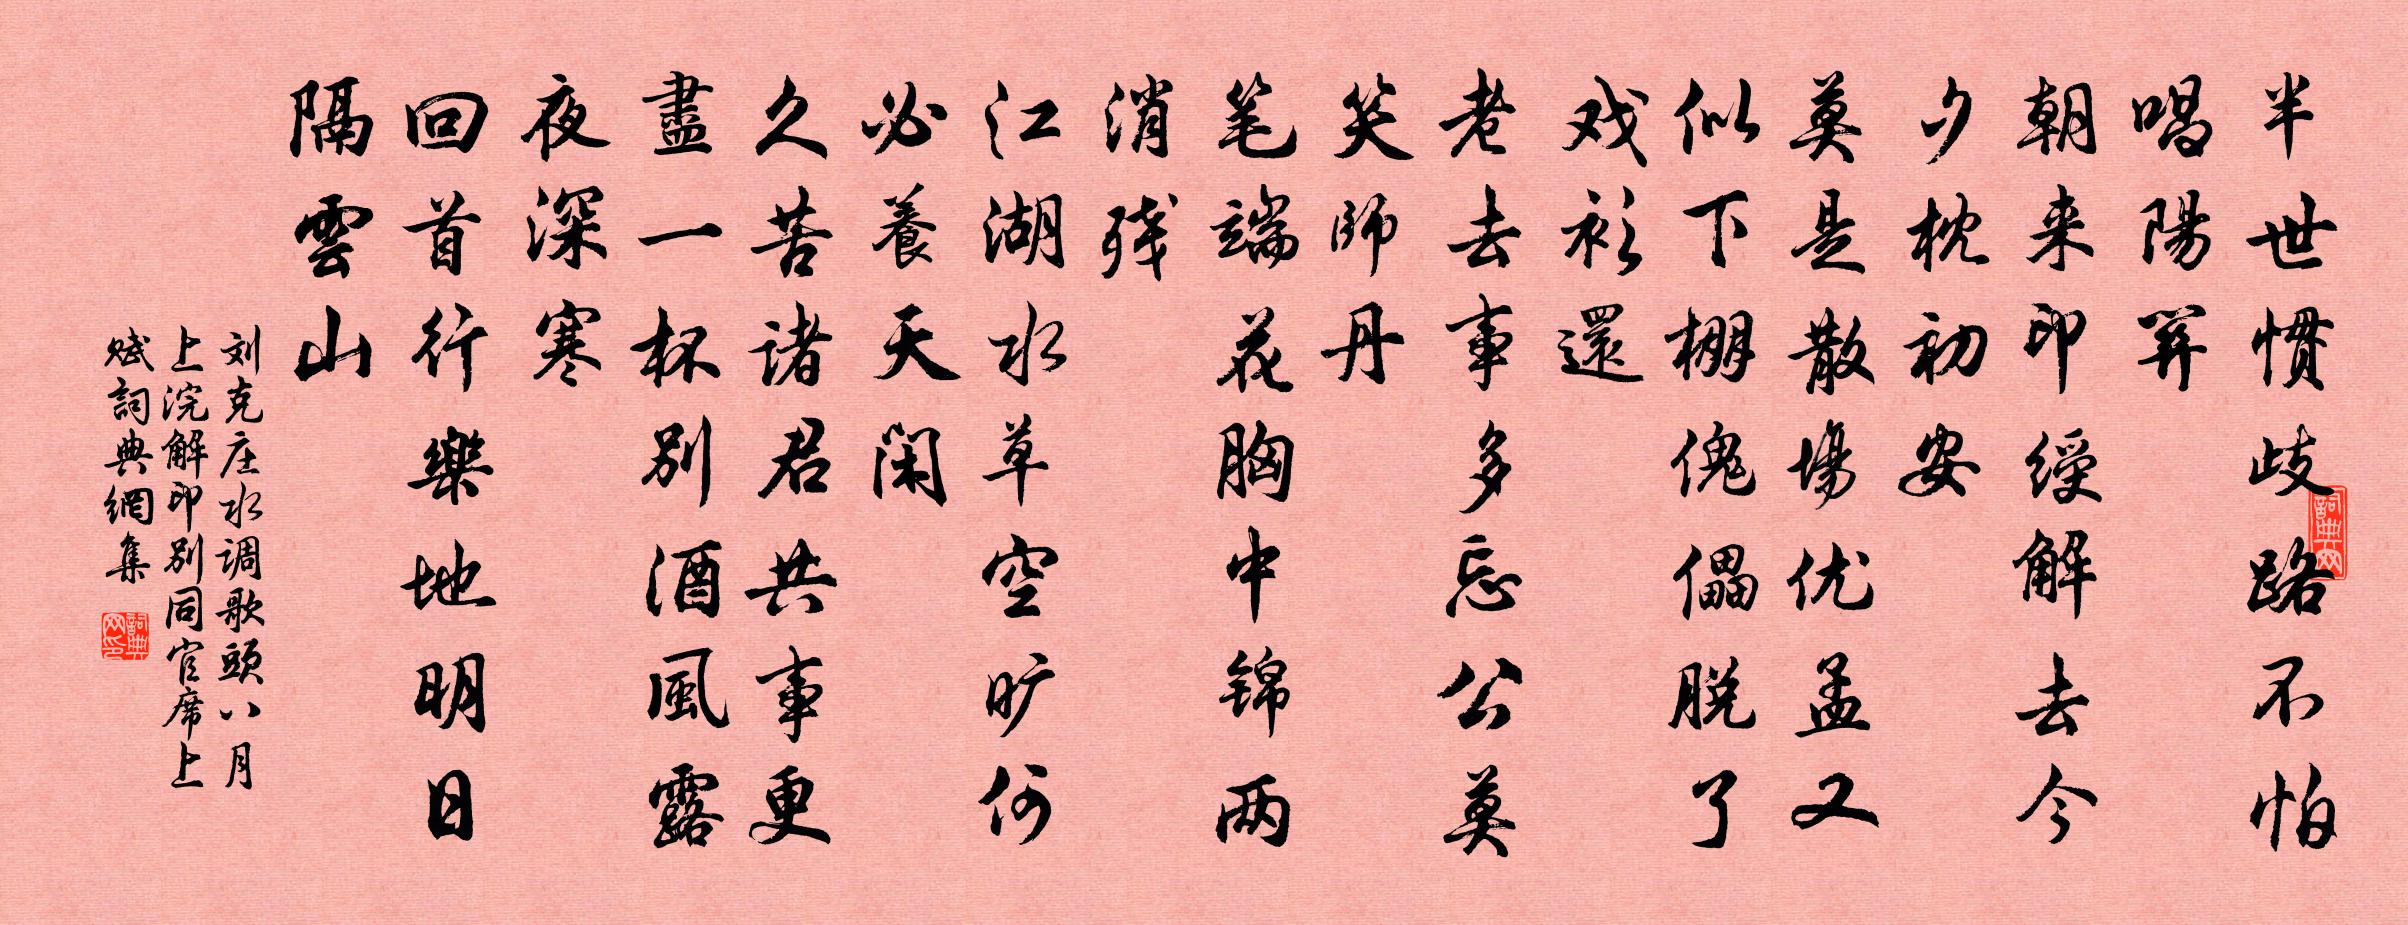 半世慣歧路不怕
唱陽关
朝来印绶解去今
夕枕初安
莫是散場优孟又
似下棚傀儡脱了
戏衫還
老去事多忘公莫
笑師丹
笔端花胸中锦两
消残
江湖水草空旷何
必養天闲
久苦诸君共事更
盡一杯别酒風露
夜深寒
回首行樂地明日
隔雲山
刘克庄水调歌頭八月
上浣解印别同官席上
赋詞典網集
詞典网
詞典网印